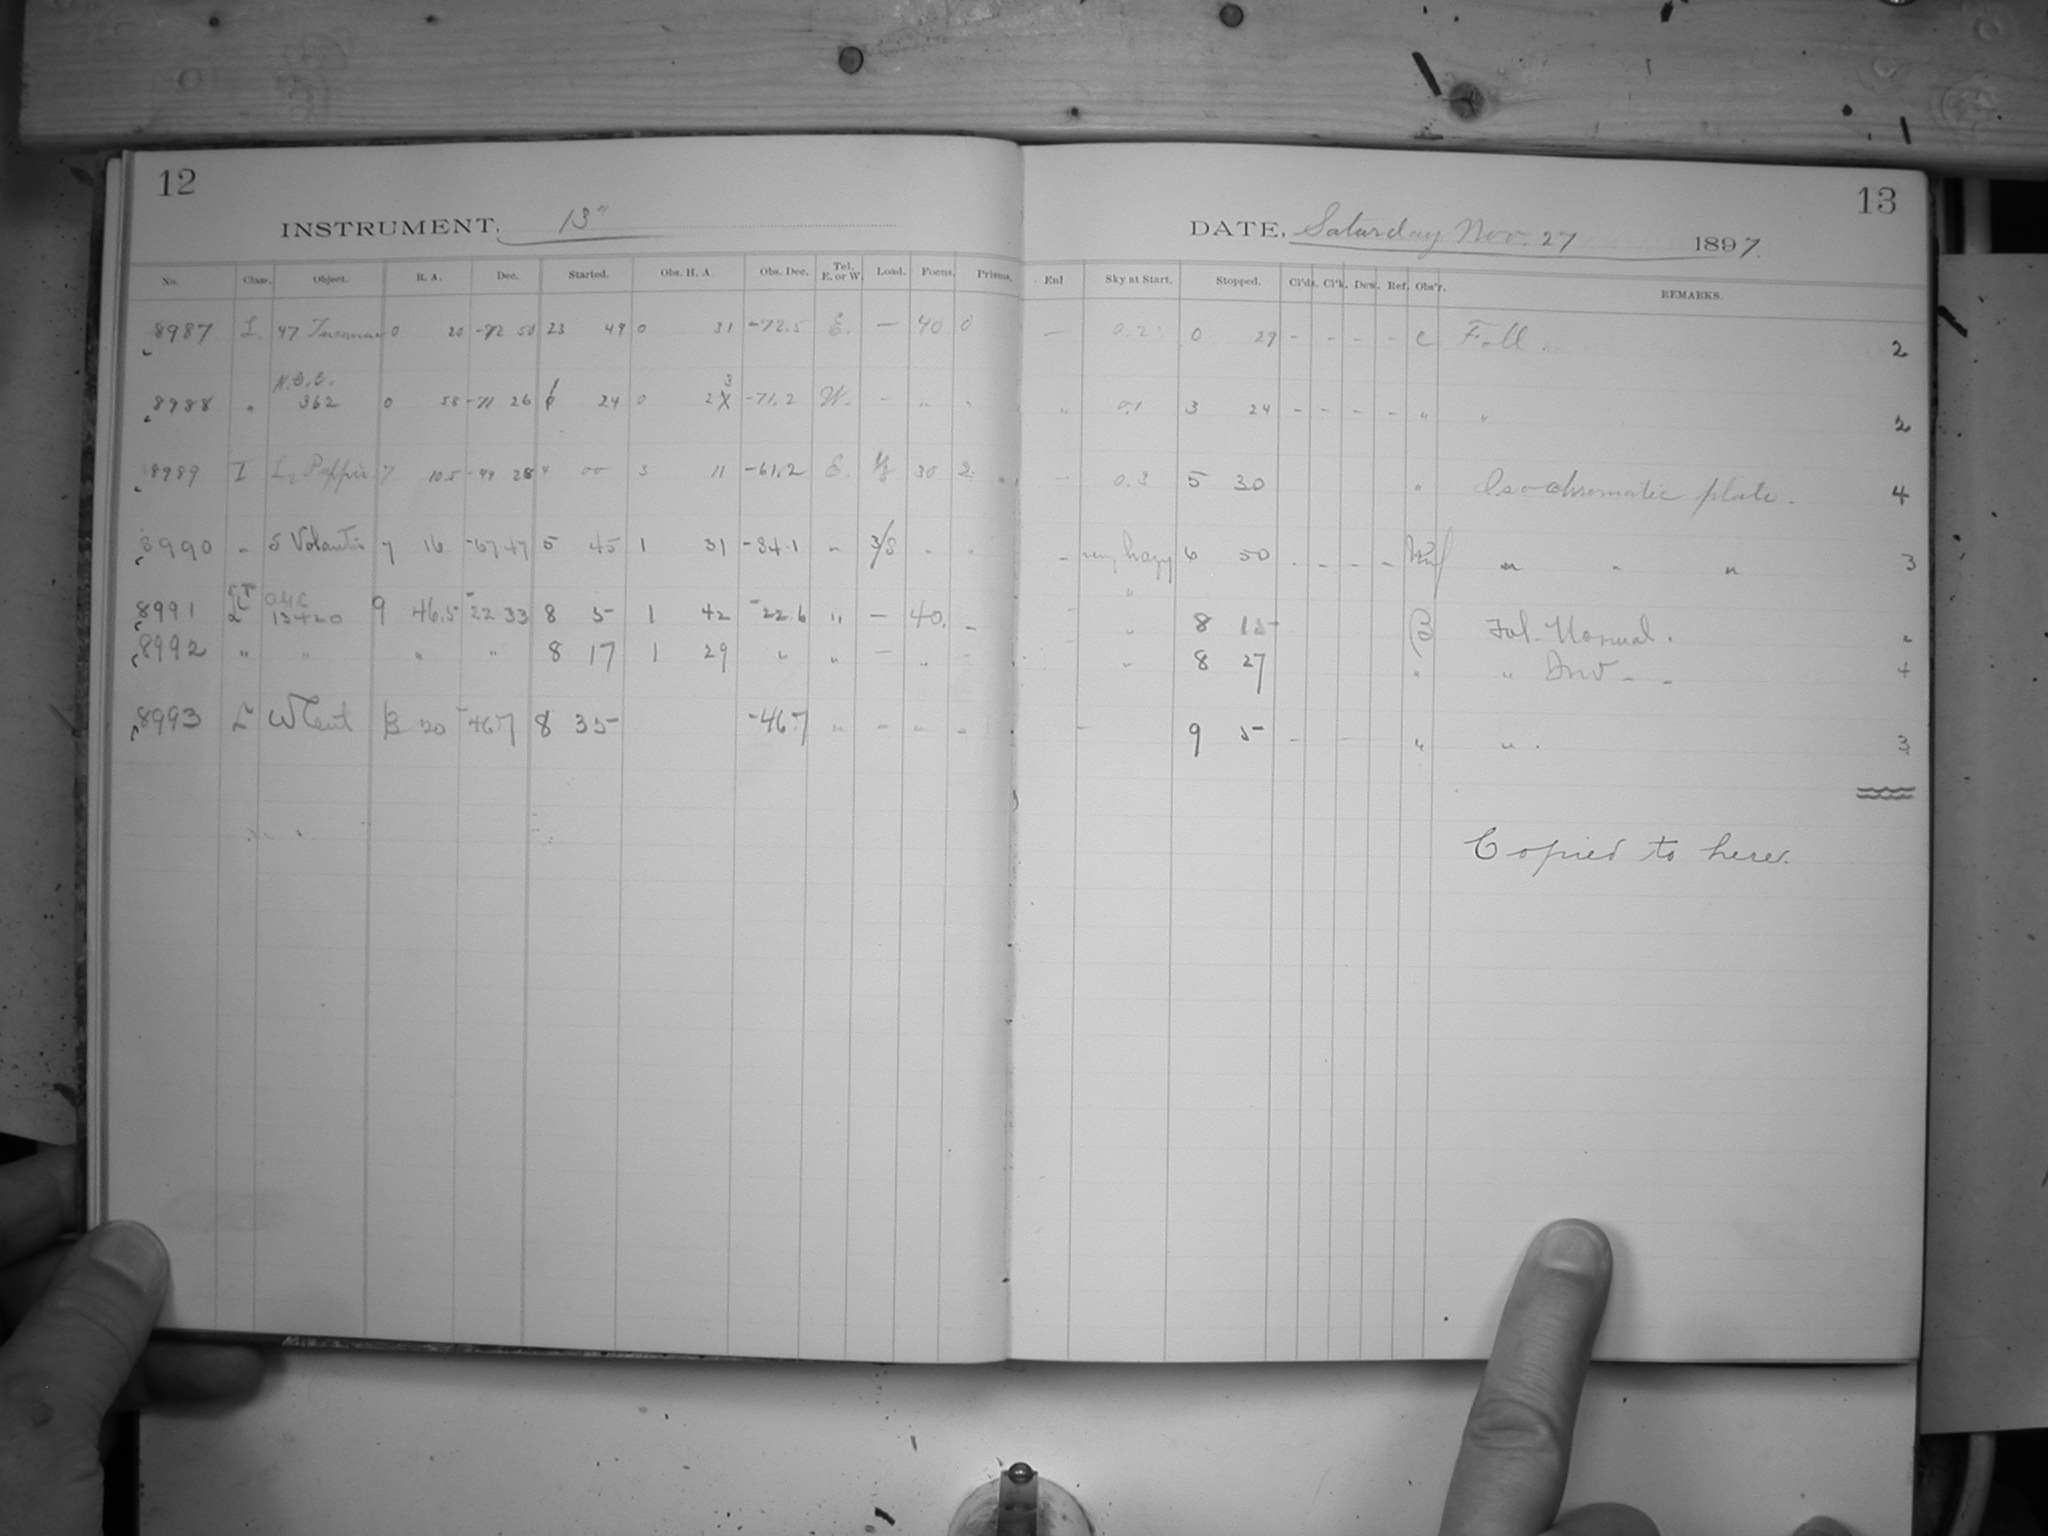 12
INSTRUMENT. 13"
No. Class. Object. R. A. Dec. Started. Obs. H. A. Obs. Dec. Tel. E. or W. Load. Focus. Prisms.
8987 L. 47 0 20 -72 50 23 49 0 31 -72.5 E. — 40 0
N.G.C.
8988 " 362 0 58 -71 26 24 0 2 3 -71.2 W. - " "
8989 I L2 Puppis 7 10.5 -44 28 4 00 3 11 -61.2 E. 30 2
8990 " S Volantis 7 16 -67 47 5 45 1 31 -84.1 " 3/8 " "
8991 13420 9 46.5 -22 33 8 5 1 42 -22.6 " — 40. -
8992 " " " " 8 17 1 29 " " — " -
8993 L ω Cent 13 20 -46.7 8 35 -46.7 " - " -
13
DATE, Saturday Nov. 27 1897.
Enl Sky at Start. Stopped. Cl'ds. Cl'k. Dew. Ref. Obs'r. REMARKS.
— 0.2 0 29 - - - - C Foll. 2
" 0.1 3 24 - - - - " " 2
- 0.3 5 30 " Isochromatic plate. 4
- very hazy 6 50 - - - - " " " 3
" 8 15 B Fol. Normal.
" 8 27 " " Inv - - 4
- 9 5 - - " " . 3
Copied to here.